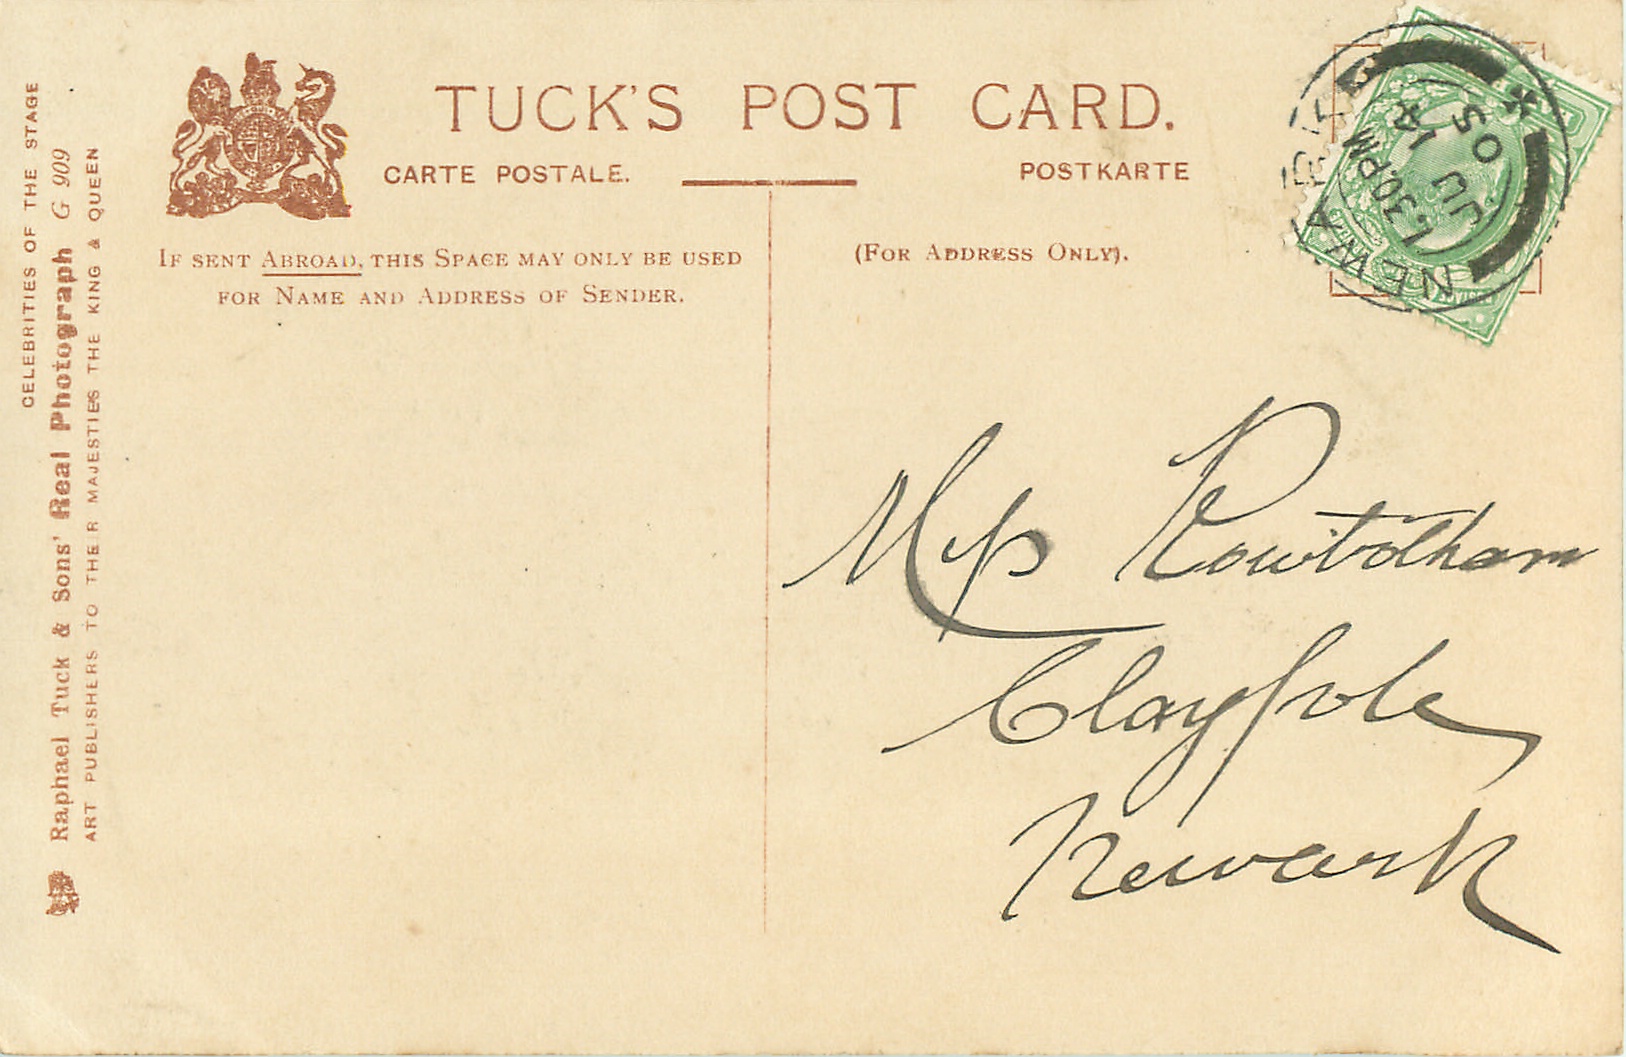 TUCK'S POST CARD.
CARTE POSTALE.
POSTKARTE
IF SENT ABROAD, THIS SPACE MAY ONLY BE USED
FOR NAME AND ADDRESS OF SENDER.
(FOR ADDRESS ONLY).
CELEBRITIES OF THE STAGE
Raphael Tuck & Sons' Real Photograph G 909
ART PUBLISHERS TO THEIR MAJESTIES THE KING & QUEEN
NEWARK
1.30PM
JU 14
05
Claypole
Newark